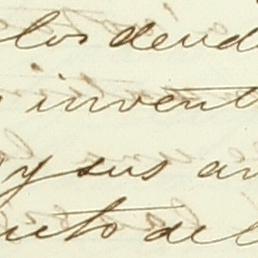 los deud
invent
y sus an
to del